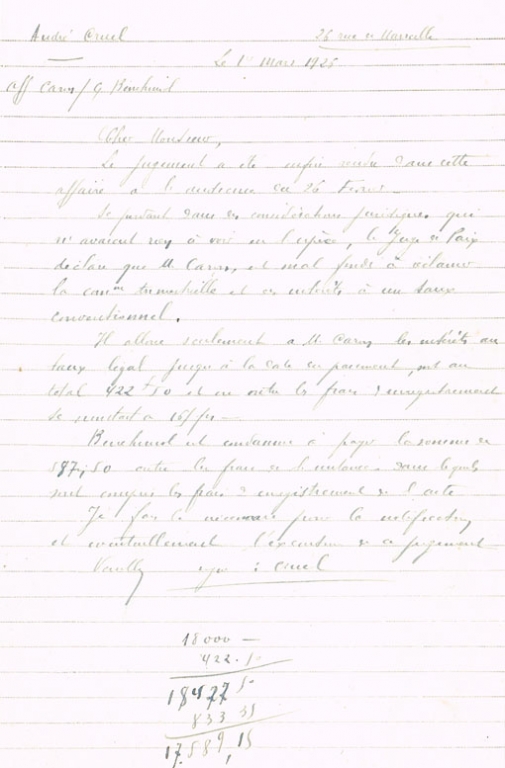 André Cruel 26 rue de Marseille
Le 1er Mars 1926
Aff Carus / G. Benchimil
Cher Monsieur,
Le jugement a été enfin rendu dans cette
affaire à l'audience du 26 Février
Se perdant dans des considérations juridiques qui
n'avaient rien à voir en l'espèce, le Juge de Paix
déclare que M. Carus, est mal fondé à réclamer
la con trimestrielle et ses intérêts à un taux
conventionnel.
Il alloue seulement à M. Carus les intérêts au
taux légal jusqu'à la date du paiement, soit au
total 422 f 50 et en outre les frais d'enregistrement
se montant à 165 frs —
Benchimil est condamné à payer la somme de
587,50 outre les frais de l'instance dans lesquels
sont compris les frais d'enregistrement de l'acte
Je fais le nécessaire pour la notification
et éventuellement l'exécution de ce jugement
Veuillez signé : Cruel
18000 —
422.50
18422 50
833 35
17.589,15